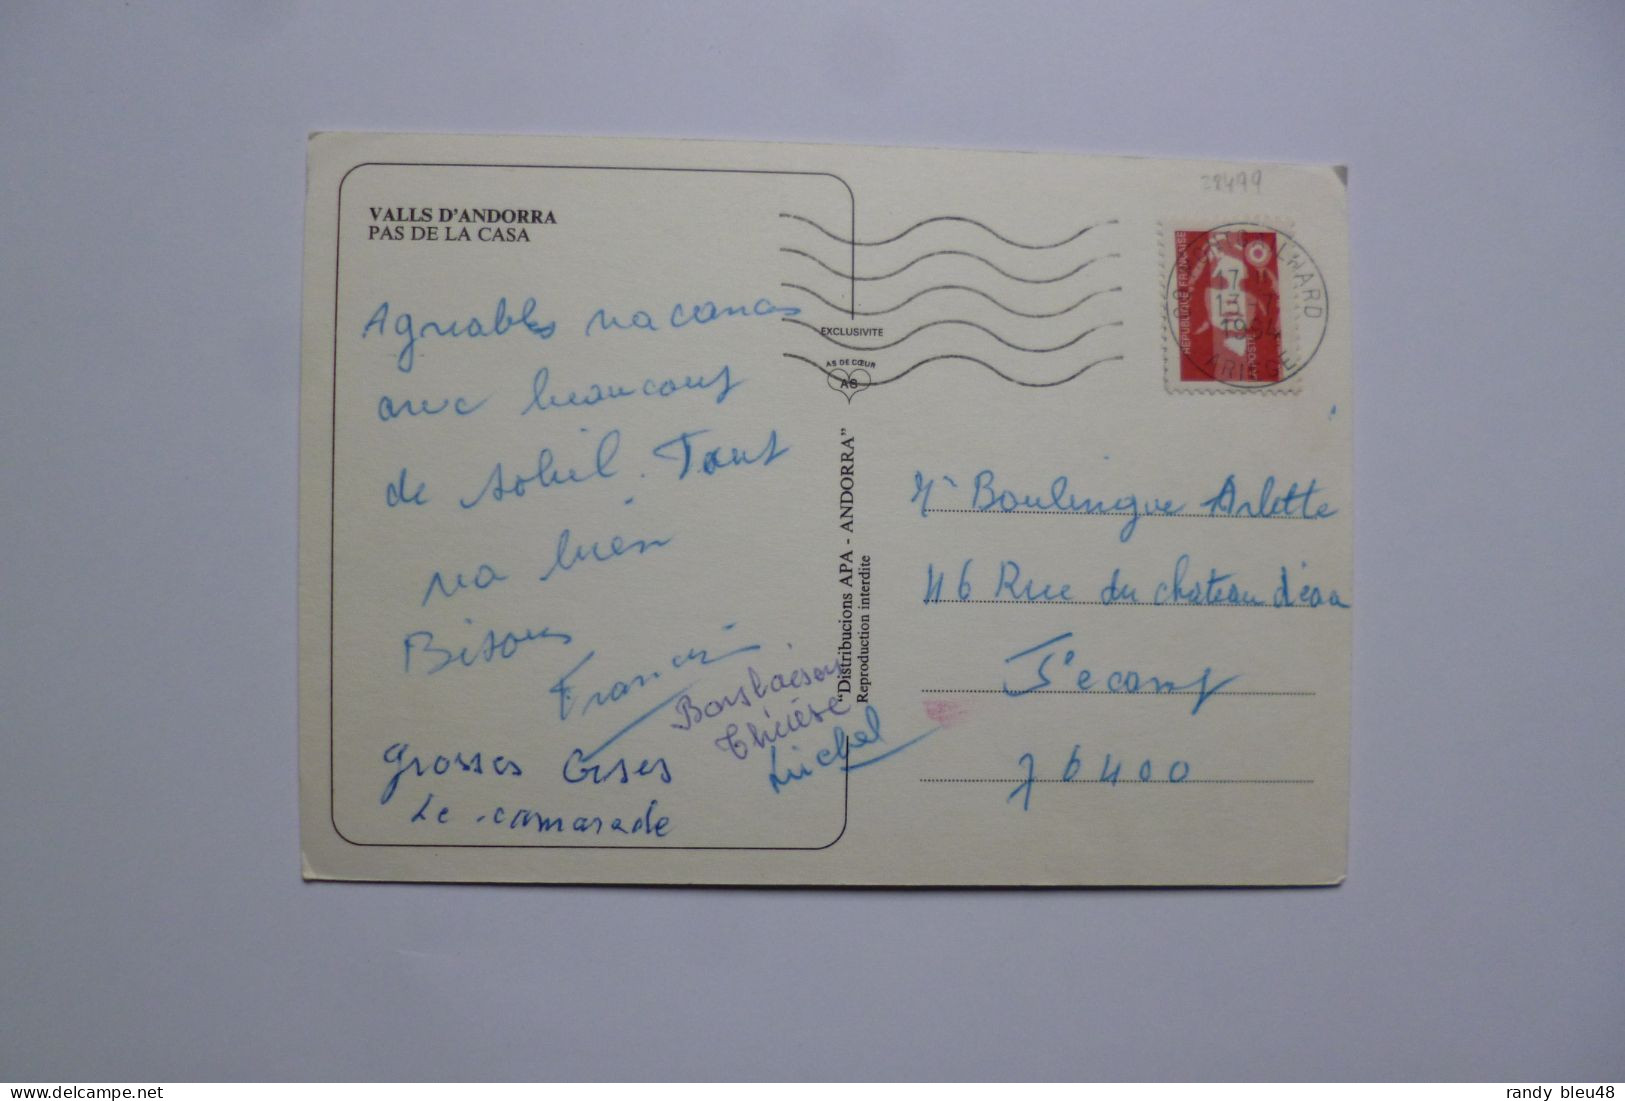 VALLS D'ANDORRA
PAS DE LA CASA
Agréables vacances
avec beaucoup
de soleil. Tout
va bien
Bisous
Francis
Thérèse
Michel
grosses Bises
Le camarade
EXCLUSIVITE
AS DE CŒUR
AS
"Distribucions APA - ANDORRA"
Reproduction interdite
28499
REPUBLIQUE FRANÇAISE
LA POSTE
17 H
13-7
1994
ARIEGE
Me Boulingue Arlette
46 Rue du chateau d'eau
Fecamp
76400
delcampe.net
randy bleu48